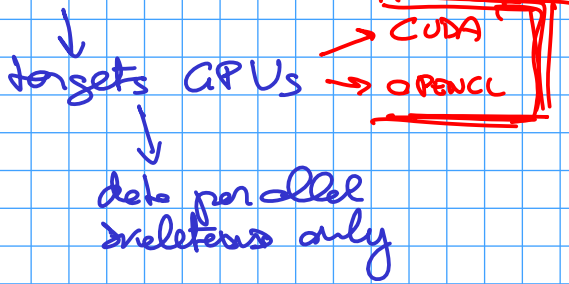 CUDA
targets GPUs
OPENCL
data parallel
skeletons only